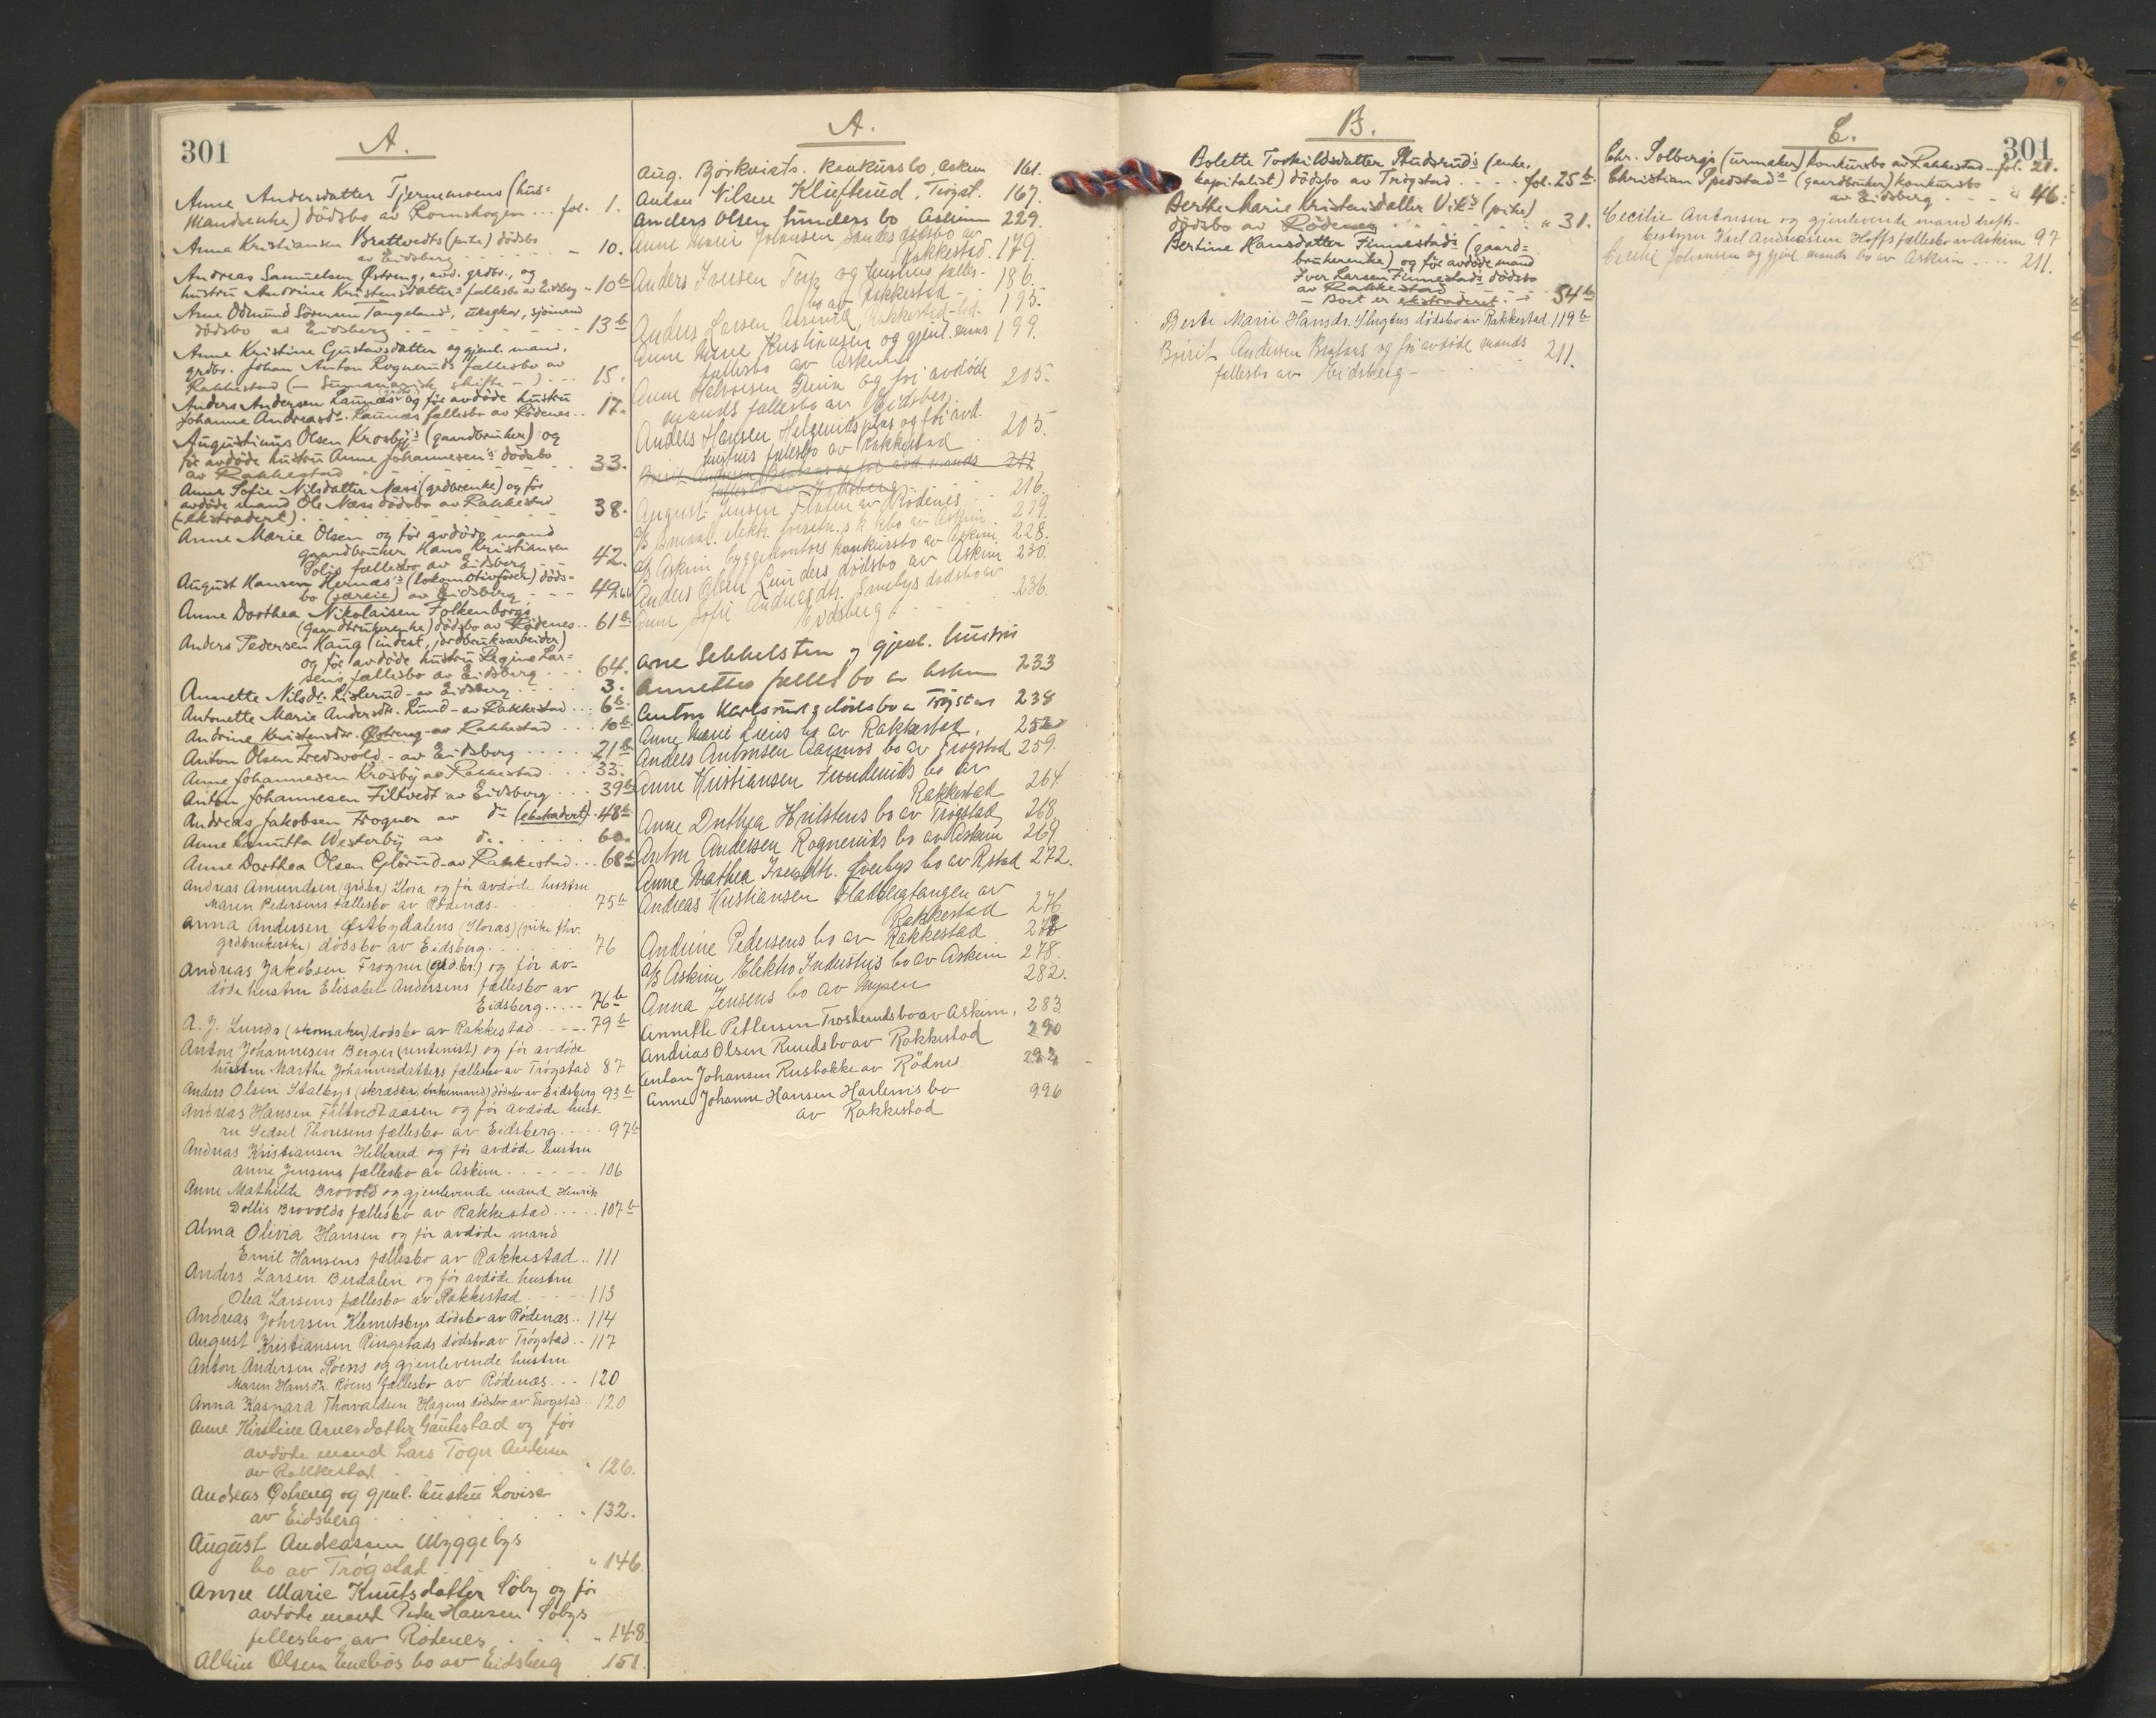 301
A.
Anne Andersdatter Tjernemoens (hus=
mandsenke) dödsbo av Romskogen ... fol. 1.
Anna Kristiansen Brattvedts (pike) dödsbo
av Eidsberg - 10.
Andreas Samuelsen Østreng, avd. grdbr., og
hustru Andrine Kristensdatters fællesbo av Eidsberg - 10b
Arne Odmund Sörensen Tangeland, uksgkar, sjömend
dödsbo av Eidsberg - 13b
Anne Kristine Gustavsdatter og gjenl. mand,
grdbr. Johan Anton Rognerüds fællesbo av
Rakkestad (- Summarisk skifte -) ... 15.
Anders Andersen Launæs og för avdöde hustru
Johanne Andreasdr. Launæs fællesbo av Rödenes .. 17.
Augustinus Olsen Krosby's (gaardbruker) og
för avdöde hustru Anne Johannesen's dödsbo
av Rakkestad 33.
Anne Sofie Nilsdatter Næss (grdbrenke) og för
avdöde mand Ole Næss dödsbo av Rakkestad
(ekstradert) 38.
Anne Marie Olsen og för avdöde mand
gaardbruker Hans Kristiansen
Solis fællesbo av Eidsberg 42.
August Hansen Hernæs's (lokomotivförer) döds=
bo (værsie) av Eidsberg - - - 49.
Anne Dorthea Nikolaisen Folkenborgs
(gaardbrukerenke) dödsbo av Rödenes .. 61b
Anders Pedersen Haug (indest. jordbruksarbeider)
og för avdöde hustru Regine Lar=
sens fællesbo av Eidsberg 64.
Annette Nilsdr. Lislerud - av Eidsberg 3.
Antonette Marie Andersdtr. Lund - av Rakkestad ... 6b.
Andrine Kristensdr. Østreng - av Rakkestad ... 10b
Anton Olsen Fredsvold - av Eidsberg ..... 21b
Anne Johannesen Krosby av Rakkestad ... 33.
Anton Johannesen Filtvedt av Eidsberg ... 39b
Andreas Jakobsen Frogner av do (ekstradert) . 48b
Anne Lovutta Westerby av do. 60.
Anne Dorthea Olsen Glörud av Rakkestad ... 68b
Andreas Amundsen (grdbr) Slora og för avdöde hustru
Maren Pedersens fællesbo av Rödenæs. 75b
Anna Andersen Østbydalens (Sloras) (pike fhv.
grdbrukerske) dödsbo av Eidsberg 76
Andreas Jakobsen Frogner (grd.br.) og för av-
döde hustru Elisabet Andersens fællesbo av
Eidsberg ..... 76b
A. J. Lunds (skomaker) dodsbo av Rakkestad ..... 79b
Anton Johannesen Berger (rentenist) og för avdöde
hustru Marthe Johannesdatters fællesbo av Trögstad 87
Anders Olsen Stalbys (skrædder, enkemand) dödsbo av Eidsberg 93b
Andreas Hansen Filtvedtaasen og för avdöde hust-
ru Sidsel Thoresens fællesbo av Eidsberg ..... 97b
Andreas Kristiansen Hellerud og för avdöde hustru
Anne Jensens fællesbo av Askim ...... 106
Anne Mathilde Brovold og gjenlevende mand Henrik
Dollis Brovolds fællesbo av Rakkestad ..... 107b
Alma Olivia Hansen og för avdöde mand
Emil Hansens fællesbo av Rakkestad .. 111
Anders Larsen Burdalen og för avdöde hustru
Olea Larsens fællesbo av Rakkestad 113
Andreas Johnsen Klemetsbys dödsbo av Rödenæs .. 114
August Kristiansen Ringstads dödsbo av Trögstad .. 117
Anton Andersen Röens og gjenlevende hustru
Maren Hansdtr. Röens fællesbo av Rödenæs ... 120
Anna Kaspara Thorvaldsen Hagens dödsbo av Trögstad .. 120
Anne Kirstine Arnesdatter Gautestad og för
avdöde mand Lars Töger Andersen
av Rakkestad 126.
Andreas Østreng og gjenl. hustru Lovise
av Eidsberg 132.
August Andreassen Myggebys
bo av Trögstad 146
Anne Marie Knutsdatter Söby og för
avdöde mand Peder Hansen Söbys
fellesbo av Rödenes 148
Albin Olsen Enebös bo av Eidsberg 151.
A.
Aug. Björkvists. konkursbo, Askim 161.
Anton Nilsen Kluftrud, Trögst. 167.
Anders Olsen Lunders bo Askim 229.
Anne Marie Johansen Sandes dødsbo av
Rakkestad. 179.
Anders Iversen Torp og hustrus felles-
bo av Rakkestad - 186.
Anders Larsen Rakkestad 195.
Anne Marie Kristiansen og gjenl. mans 199.
fellesbo av Askim
Anne Halvorsen og för avdöde 205.
mands fællesbo av Eidsberg
Anders Hansen Helgerudsplas og för avd.
hustrus fællesbo av Rakkestad 205.
Börit Andersen Braaras og för avd. mands 211
fællesbo av Eidsberg
August Jensen Flaten av Rödenes 216.
A/S elektr. s k.kbo av Askim . 219.
A/S Askim byggekontors konkursbo av Askim 228.
Anders Olsen Lunders dødsbo av Askim 230.
Anne Sofie Andreasdtr. Smebys dødsbo av
Eidsberg 236.
Arne Sekkelsten og gjenl. hustru
Annettes fælles bo av Askim 233
Anton Karlsruds dödsbo av Trögstad 238
Anne Marie Liens bo av Rakkestad, 252
Anders Antonsen Aamos bo av Trögstad 259.
Anne Kristiansen Funderuds bo av
Rakkestad 264
Anne Dorthea Hvilstens bo av Trögstad 268
Anton Andersen Rogneruds bo av Askim 269
Anne Mathea Iversdtr. Överbys bo av R.stad 272.
Andreas Kristiansen Fladbergtangen av
Rakkestad 276
Andrine Pedersens bo av Rakkestad
A/S Askim Elektro Industris bo av Askim 278.
Anna Jensens bo av Mysen 282.
Annette Pettersen Trosteruds bo av Askim, 283
Andreas Olsen Ruuds bo av Rakkestad 290
Anton Johansen Rusbakke av Rödnes 292
Anne Johanne Hansen Harlems bo 996
av Rakkestad
B.
Bolette Torkildsdatter Skudsruds (enke,
kapitalist) dödsbo av Trögstad .... fol. 25b.
Berthe Marie Kristensdatter Vik's (pike)
dödsbo av Rödenes " 31.
Bertine Hansdatter Finnestad's (gaard=
brukerenke) og för avdöde mand
Iver Larsen Finnestads dödsbo
av Rakkestad
- Boet er ekstraderet. - 54b
Berte Marie Hansdr. Slugtus dödsbo av Rakkestad. 119b
Börit Andersen Braaras og för avdöde mands 211.
fællesbo av Eidsberg -
C.
301
Chr. Solberg's (urmaker) konkursbo av Rakkestad .. fol. 21.
Christian Spedstad's (gaardbruker) konkursbo
av Eidsberg - - - " 46.
Cecilie Antonsen og gjenlevende mand drifts-
bestyrer Karl Andreassen Hoffs fællesbo av Askim 97
Cecilie Johansen og gjenl. mands bo av Askim .... 211.